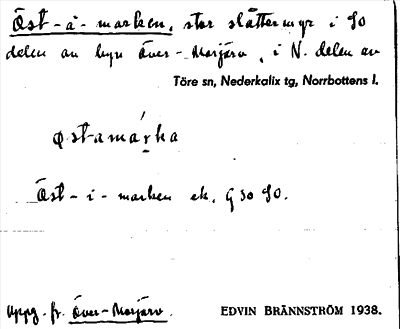 Öst-å-marken, stor slåttermyr i SO
delen av byn Över-Morjärv, i N. delen av
Töre sn, Nederkalix tg, Norrbottens l.
östamárka
Öst-i-marken ek. G 30 SO.
Uppg. fr. Över-Morjärv.
EDVIN BRÄNNSTRÖM 1938.